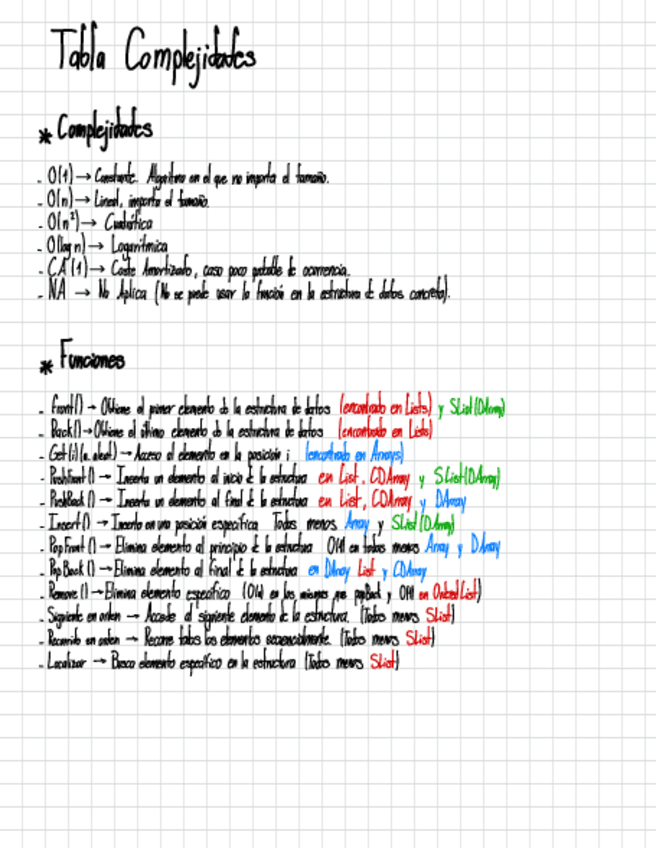 Tabla Complejidades
* Complejidades
- O(1) → Constante. Algoritmo en el que no importa el tamaño.
- O(n) → Lineal, importa el tamaño.
- O(n²) → Cuadrática
- O(log n) → Logarítmica
- CA(1) → Coste Amortizado, caso poco probable de ocurrencia.
- NA → No Aplica (No se puede usar la función en la estructura de datos concreta).
* Funciones
- Front() → Obtiene el primer elemento de la estructura de datos (encontrado en Lists) y SList(DArray)
- Back() → Obtiene el último elemento de la estructura de datos (encontrado en Lists)
- Get(i)(a. aleat) → Acceso al elemento en la posición i (encontrado en Arrays)
- PushFront() → Inserta un elemento al inicio de la estructura en List, CDArray y SList(DArray)
- PushBack() → Inserta un elemento al final de la estructura en List, CDArray y DArray
- Insert() → Inserta en una posición específica Todos menos Array y SList(DArray)
- PopFront() → Elimina elemento al principio de la estructura O(1) en todos menos Array y DArray
- PopBack() → Elimina elemento al final de la estructura en DArray List y CDArray
- Remove() → Elimina elemento específico (O(1) en los mismos que popBack y O(1) en OrderedList)
- Siguiente en orden → Accede al siguiente elemento de la estructura. (Todos menos SList)
- Recorrido en orden → Recorre todos los elementos secuencialmente. (Todos menos SList)
- Localizar → Busca elemento específico en la estructura (Todos menos SList)